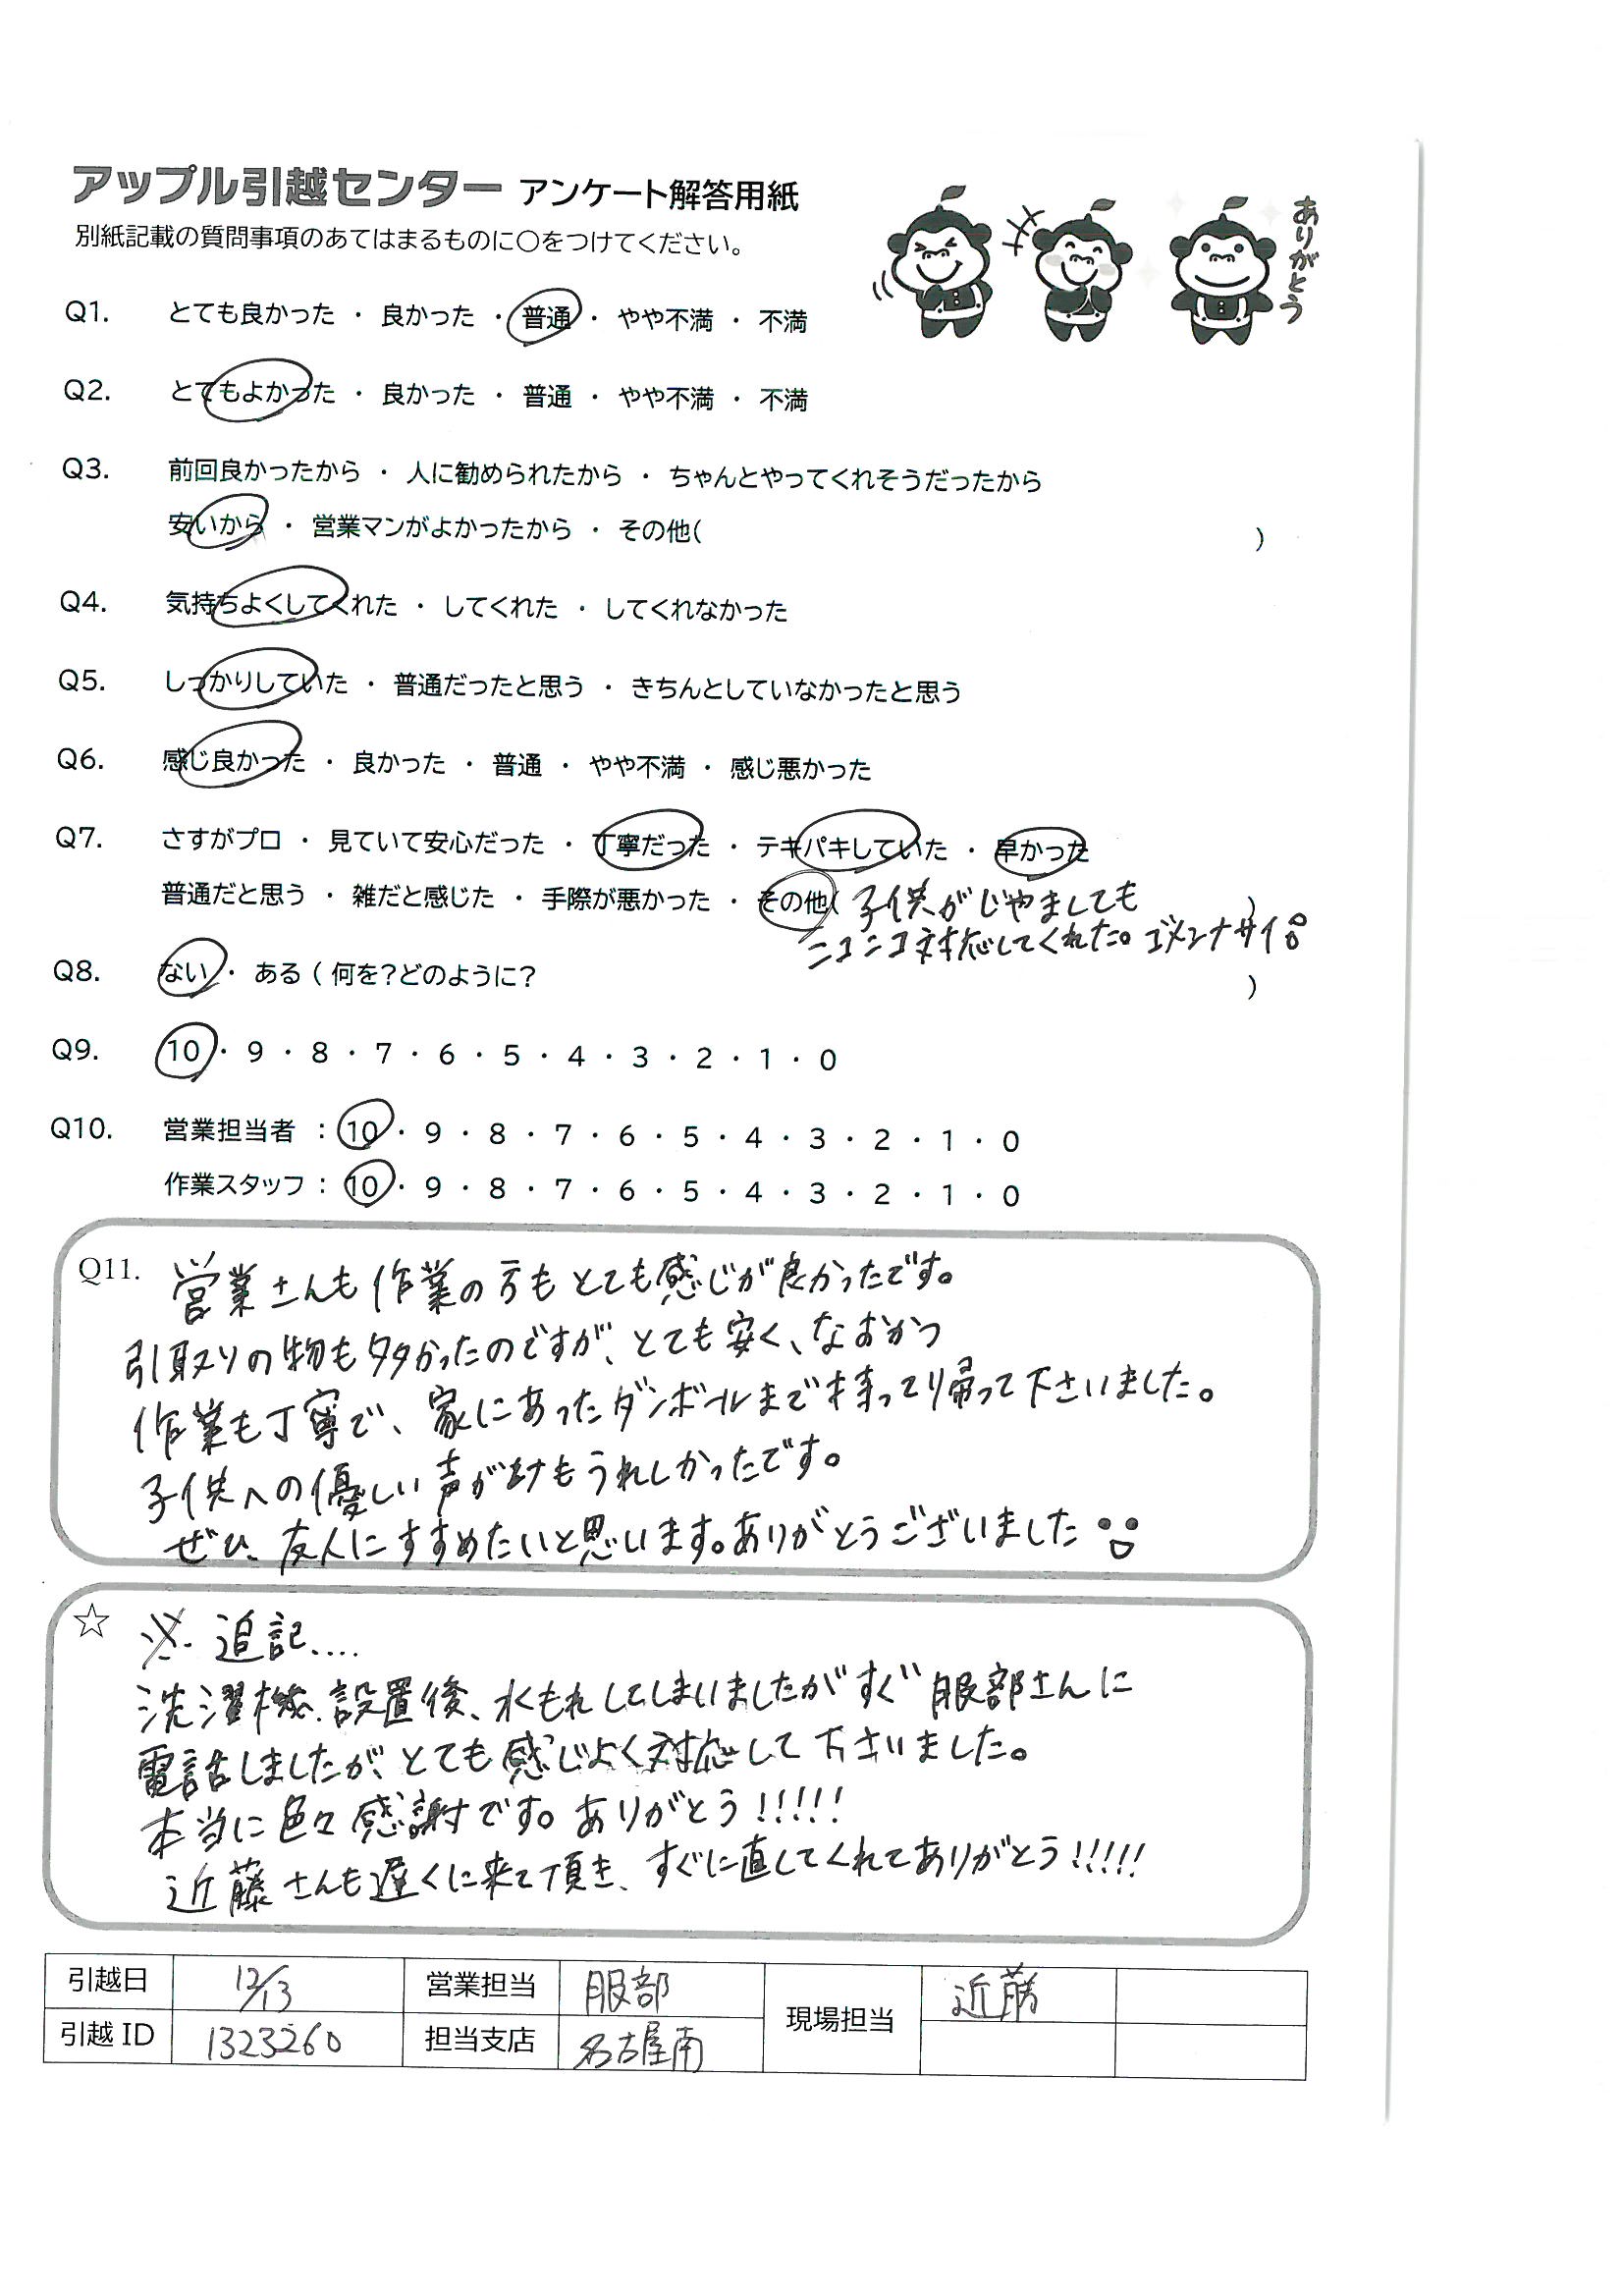 アップル引越センター アンケート解答用紙
別紙記載の質問事項のあてはまるものに○をつけてください。
ありがとう
Q1. とても良かった ・ 良かった ・ 普通 ・ やや不満 ・ 不満
Q2. とてもよかった ・ 良かった ・ 普通 ・ やや不満 ・ 不満
Q3. 前回良かったから ・ 人に勧められたから ・ ちゃんとやってくれそうだったから
安いから ・ 営業マンがよかったから ・ その他( )
Q4. 気持ちよくしてくれた ・ してくれた ・ してくれなかった
Q5. しっかりしていた ・ 普通だったと思う ・ きちんとしていなかったと思う
Q6. 感じ良かった ・ 良かった ・ 普通 ・ やや不満 ・ 感じ悪かった
Q7. さすがプロ ・ 見ていて安心だった ・ 丁寧だった ・ テキパキしていた ・ 早かった
普通だと思う ・ 雑だと感じた ・ 手際が悪かった ・ その他( 子供がじゃましても )
ニコニコ対応してくれた。ゴメンナサイ。
Q8. ない ・ ある ( 何を?どのように? )
Q9. 10 ・ 9 ・ 8 ・ 7 ・ 6 ・ 5 ・ 4 ・ 3 ・ 2 ・ 1 ・ 0
Q10. 営業担当者 : 10 ・ 9 ・ 8 ・ 7 ・ 6 ・ 5 ・ 4 ・ 3 ・ 2 ・ 1 ・ 0
作業スタッフ : 10 ・ 9 ・ 8 ・ 7 ・ 6 ・ 5 ・ 4 ・ 3 ・ 2 ・ 1 ・ 0
Q11. 営業さんも作業の方もとても感じが良かったです。
引取りの物も多かったのですが、とても安く、なおかつ
作業も丁寧で、家にあったダンボールまで持って帰って下さいました。
子供への優しい声がけもうれしかったです。
ぜひ、友人にすすめたいと思います。ありがとうございました
☆ ※ 追記....
洗濯機設置後、水もれしてしまいましたがすぐ服部さんに
電話しましたが、とても感じよく対応して下さいました。
本当に色々感謝です。ありがとう!!!!!
近藤さんも遅くに来て頂き、すぐに直してくれてありがとう!!!!!
引越日 12/13 営業担当 服部 現場担当 近藤
引越 ID 1323260 担当支店 名古屋南